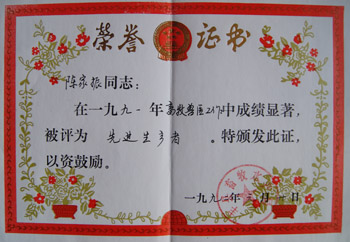 荣誉证书
陈家振同志：
在一九九一年高教普医工作中成绩显著，
被评为 先进生产者 。特颁发此证，
以资鼓励。
一九九二年三月 日